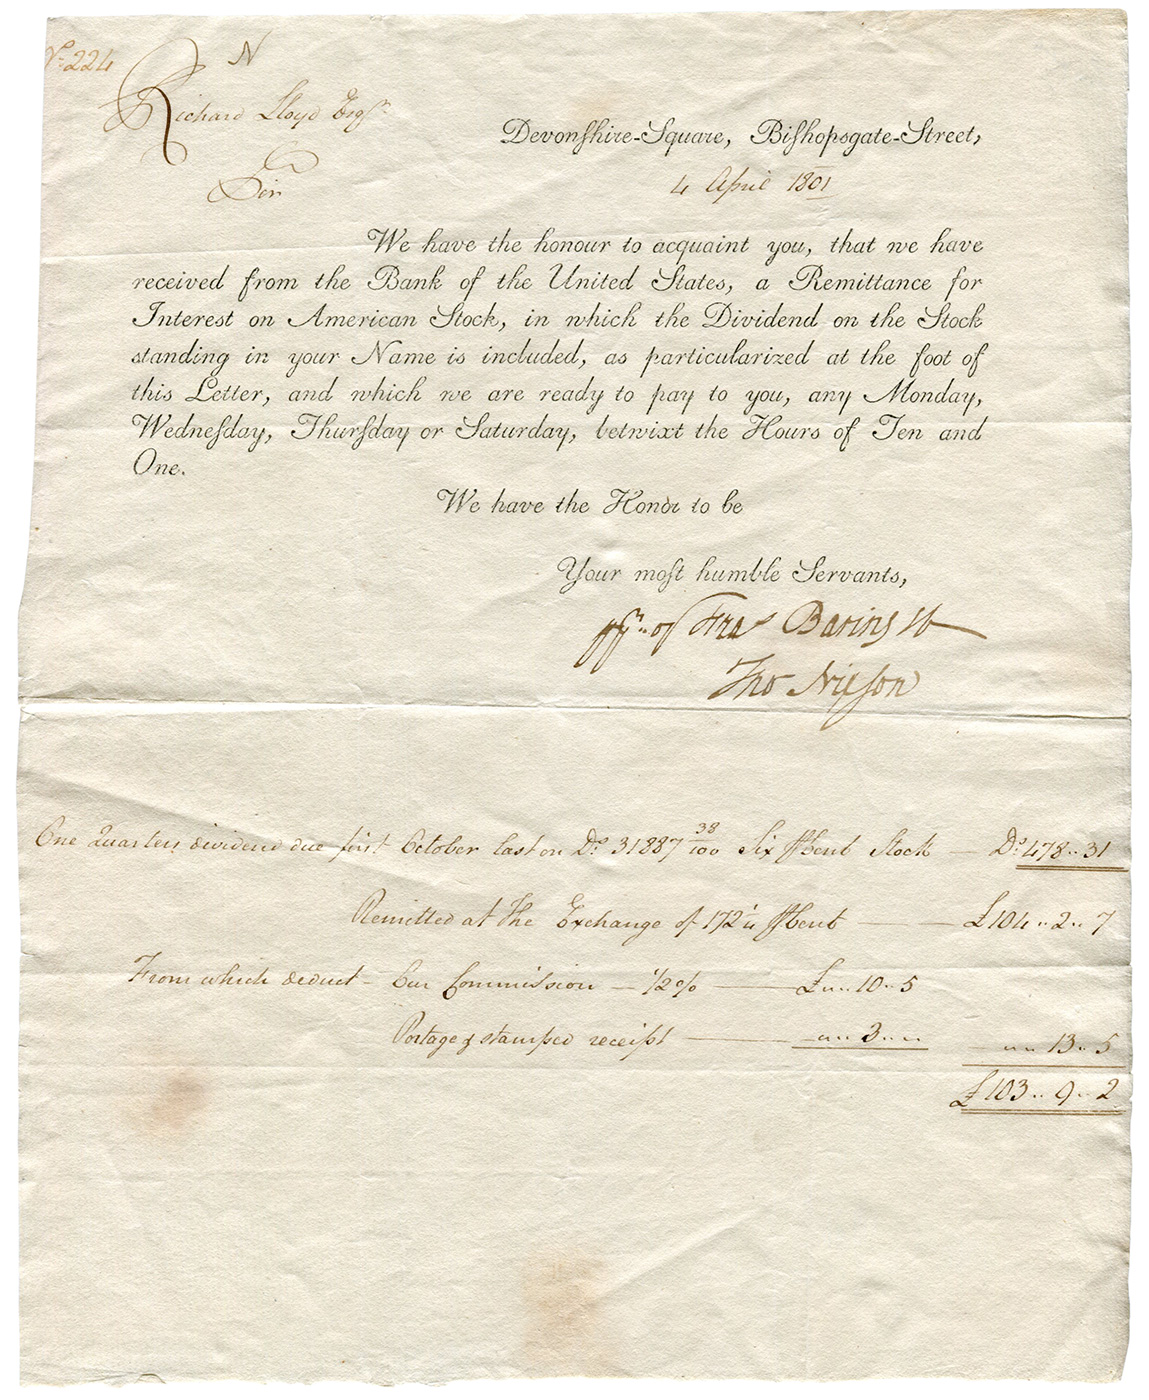 No. 224
N
Richard Lloyd Esqr.
Sir
Devonſhire-Square, Biſhopsgate-Street,
4 April 1801
We have the honour to acquaint you, that we have
received from the Bank of the United States, a Remittance for
Interest on American Stock, in which the Dividend on the Stock
standing in your Name is included, as particularized at the foot of
this Letter, and which we are ready to pay to you, any Monday,
Wedneſday, Thurſday or Saturday, betwixt the Hours of Ten and
One.
We have the Honor to be
Your moſt humble Servants,
of Fras Baring & Co
Tho Nixſon
One Quarters dividend due first October last on Ds. 31887 38/100 Six ₱Cent Stock — Ds. 478..31
Remitted at the Exchange of 172 1/4 ₱Cent — £104..2..7
From which deduct - Our Commission — 1/2 % — £ ,,..10..5
Postage & stamped receipt — ,,..3..,,  ,,..13..5
£103..9..2